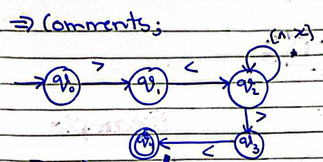 ⇒ Comments;
[^ >]
> <
q₀ q₁ q₂
>
< q₃